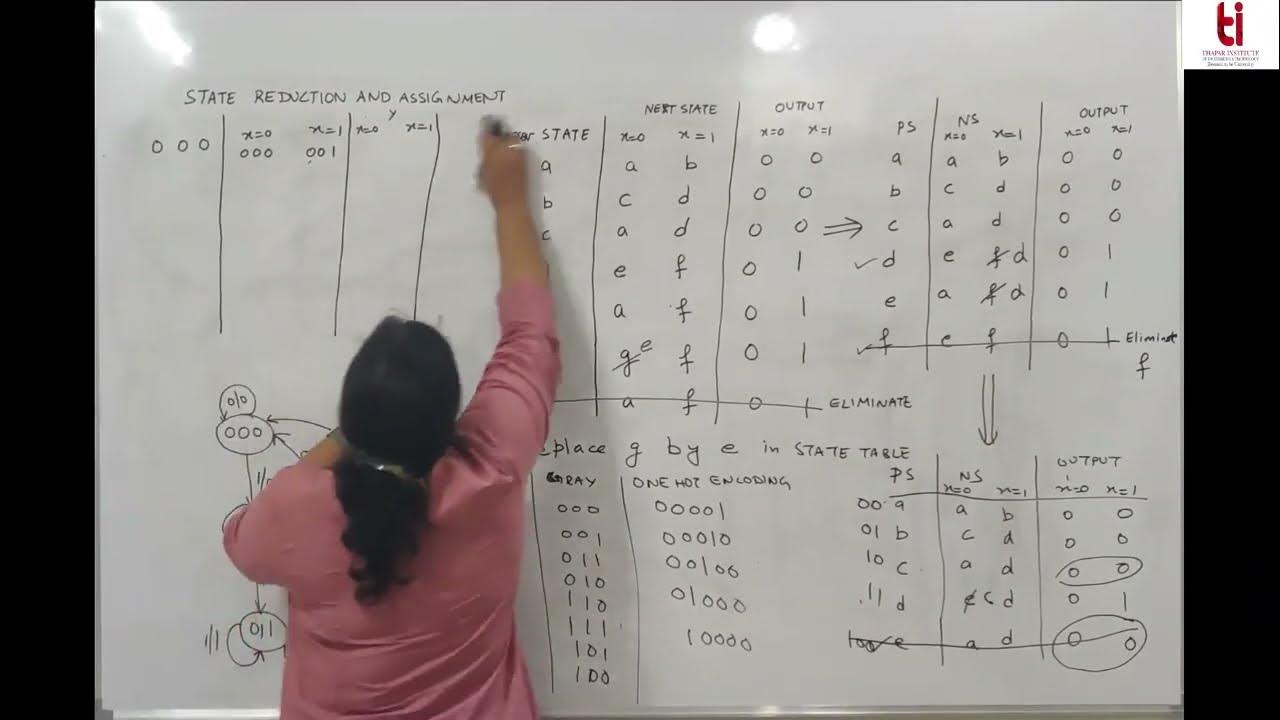 ti
THAPAR INSTITUTE
OF ENGINEERING & TECHNOLOGY
(Deemed to be University)
STATE REDUCTION AND ASSIGNMENT
y
x=0 x=1 x=0 x=1
0 0 0 000 001
NEXT STATE OUTPUT
STATE x=0 x=1 x=0 x=1
a a b 0 0
b c d 0 0
c a d 0 0 ⇒
e f 0 1
a f 0 1
g e f 0 1
a f 0 1 ELIMINATE
PS NS OUTPUT
x=0 x=1 x=0 x=1
a a b 0 0
b c d 0 0
c a d 0 0
✓ d e f d 0 1
e a f d 0 1
✓ f e f 0 1 Eliminate
f
place g by e in STATE TABLE
GRAY ONE HOT ENCODING
000 00001
001 00010
011 00100
010 01000
110
111 10000
101
100
PS NS OUTPUT
x=0 x=1 x=0 x=1
00 a a b 0 0
01 b c d 0 0
10 c a d 0 0
11 d e c d 0 1
100 e a d 0 0
0/0
000
1/
011
1/1